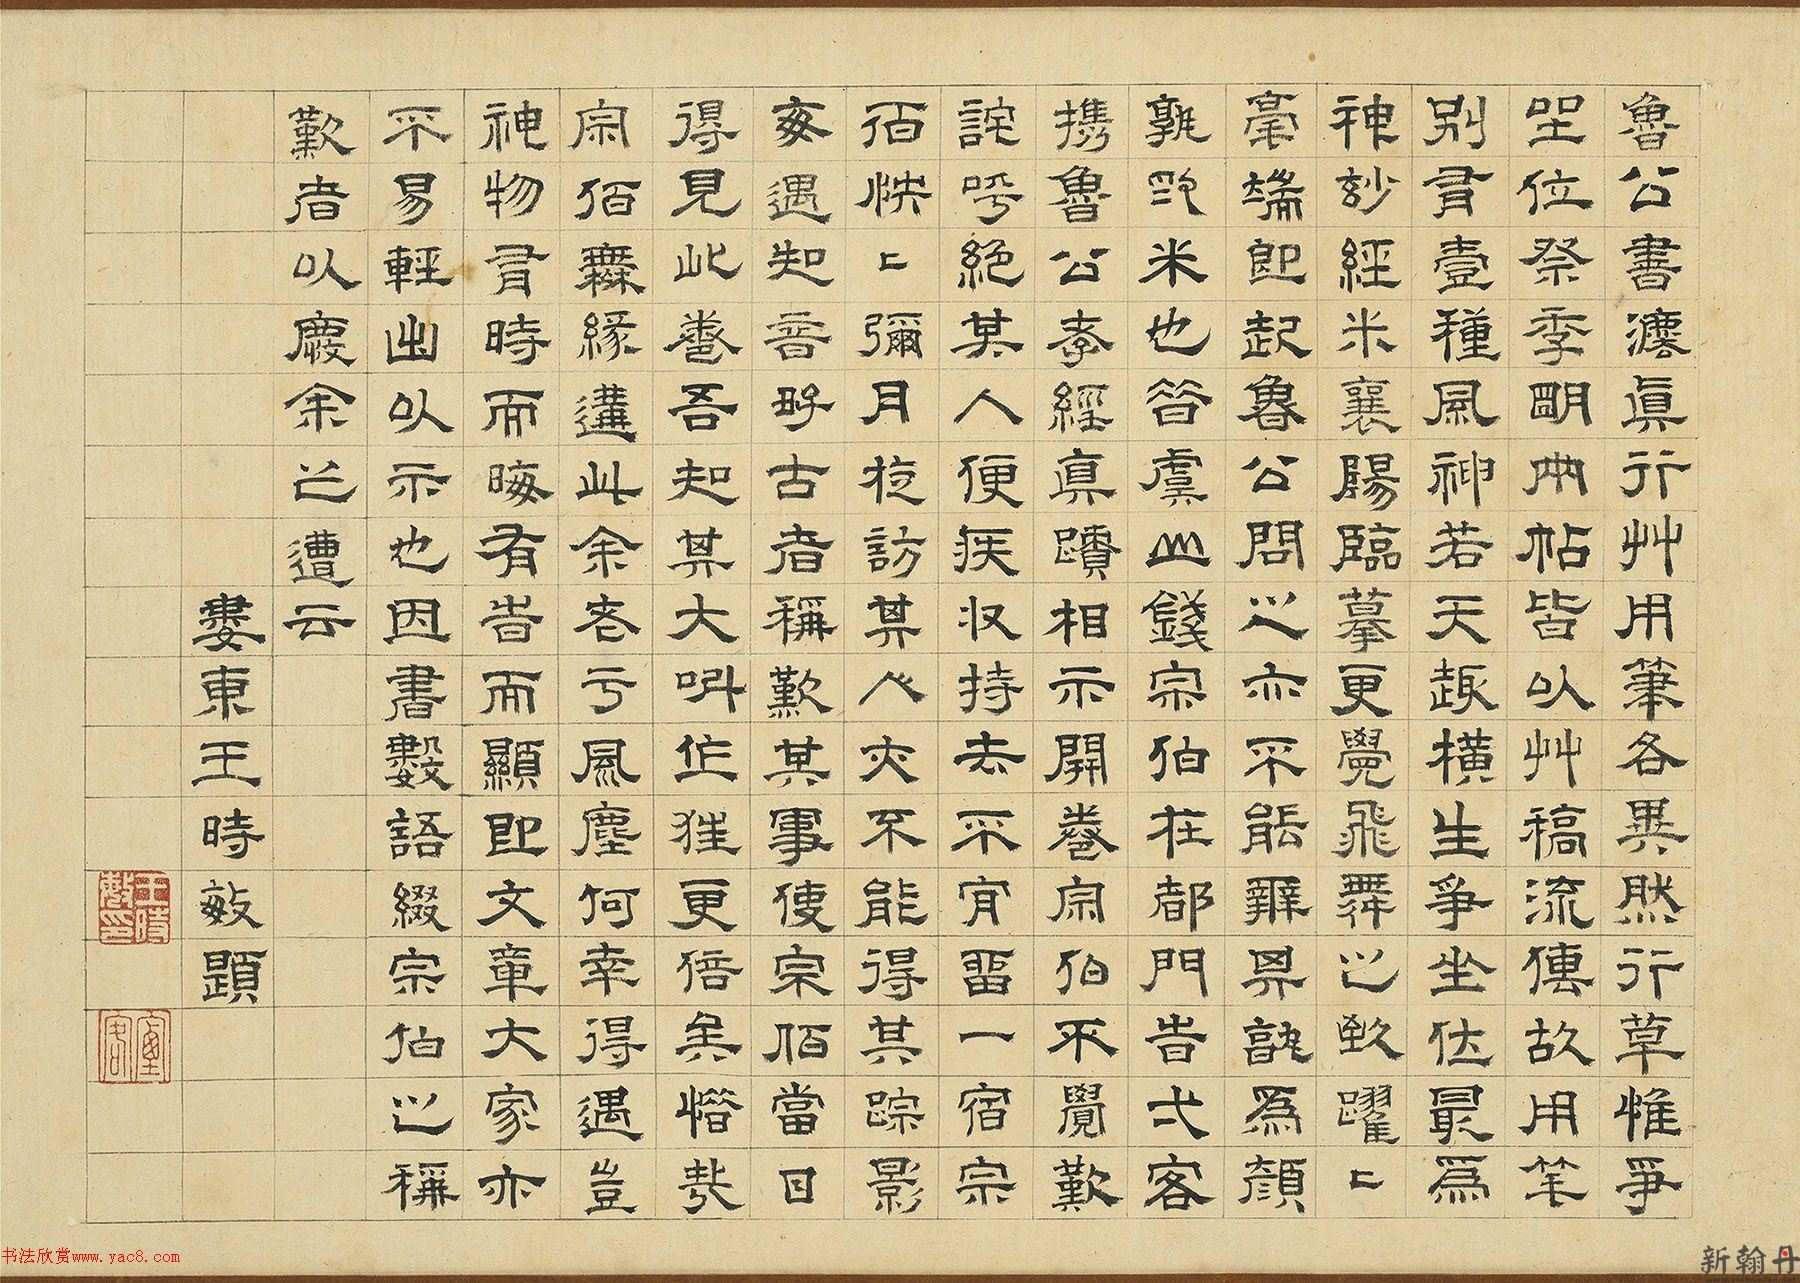 魯公書灋真行艸用筆各異然行草惟爭
坐位祭季明兩帖皆以艸稿流傳故用筆
別有壹種風神若天趣橫生爭坐位最為
神妙經米襄陽臨摹更覺飛舞之致躍〻
毫端即起魯公問之亦不能辨畀孰為顏
孰為米也昔虞山錢宗伯在都門嘗弌客
攜魯公孝經真蹟相示開卷宗伯不覺歎
詫呼絕其人便疾收持去不肯留一宿宗
伯怏〻彌月後訪其人夾不能得其踪影
每遇知音好古者稱歎其事使宗伯當日
得見此卷吾知其大叫作狂更倍矣惜哉
宗伯無緣遘此余老亏風塵何幸得遇豈
神物有時而晦有旹而顯即文章大家亦
不易輕出以示也因書數語綴宗伯之稱
歎者以慶余之遭云
婁東王時敏題
王時敏印
书法欣赏www.yac8.com
新翰丹